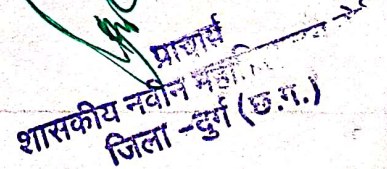 प्राचार्य
शासकीय नवीन
जिला -दुर्ग (छ.ग.)